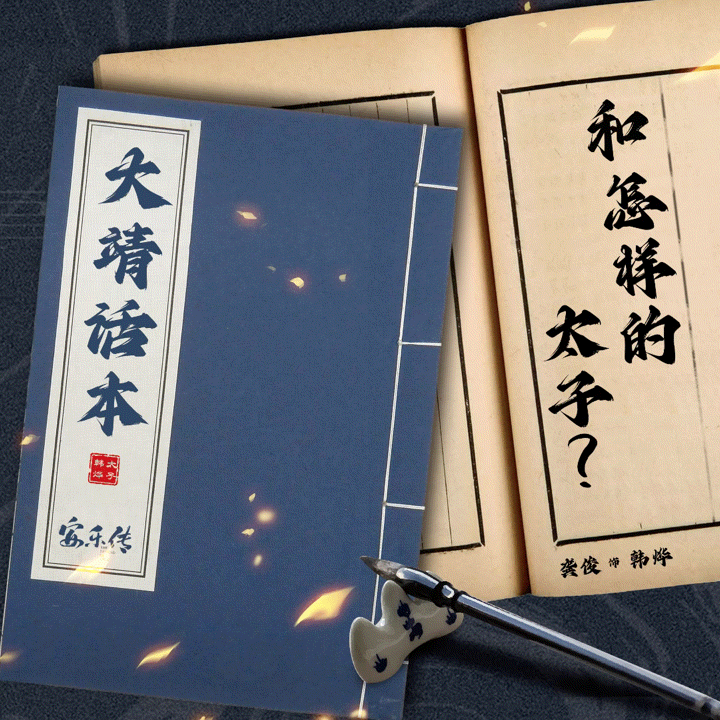 大靖话本
太子
韩烨
安乐传
和怎样的
太子?
龚俊 饰 韩烨